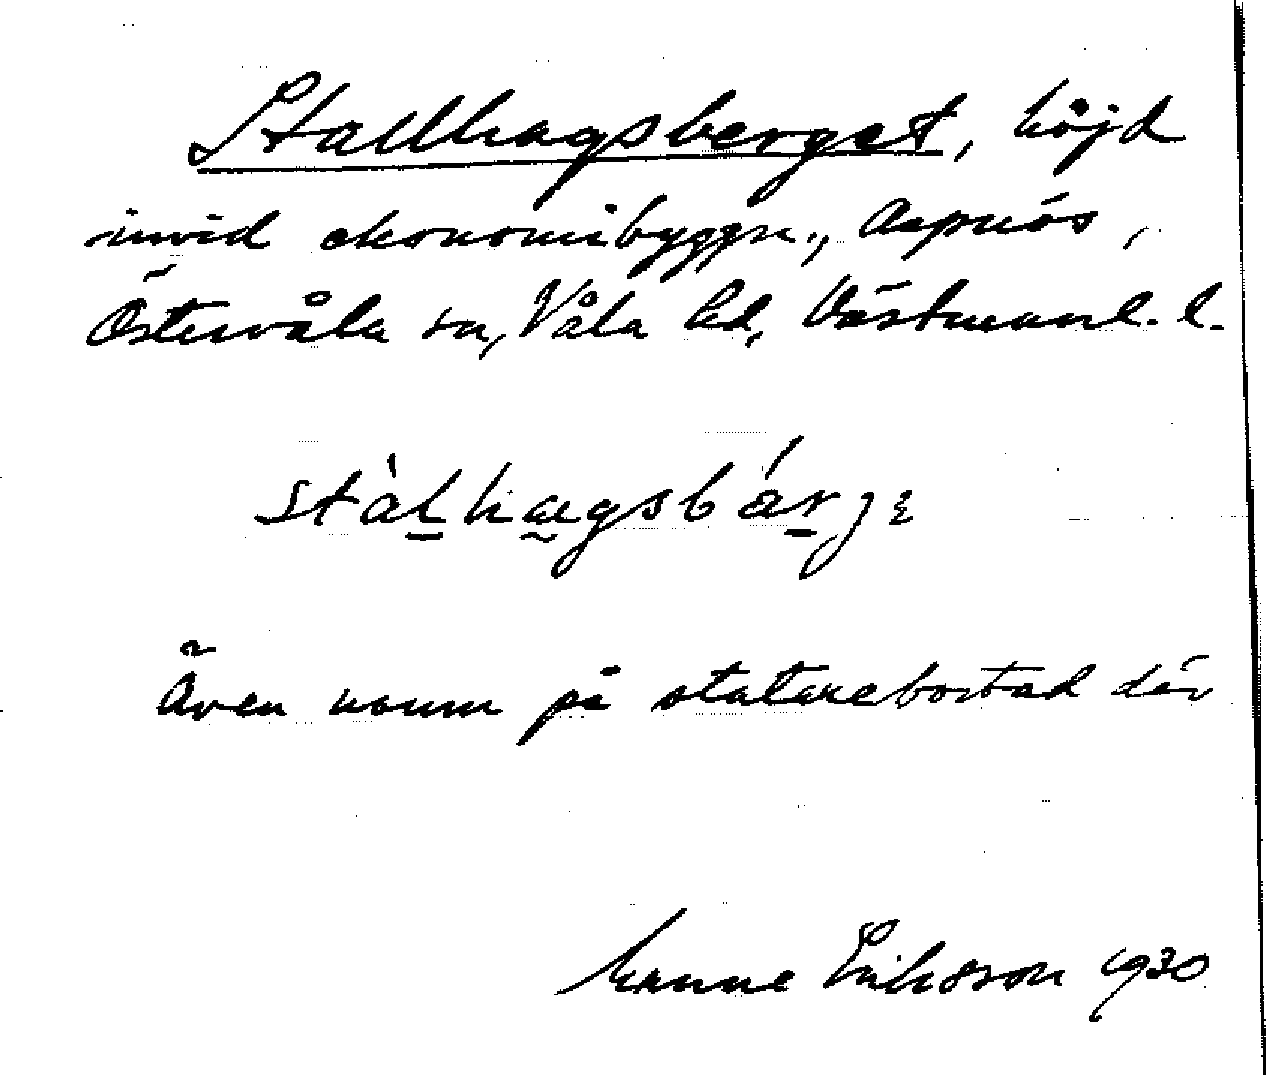 Stallhagsberget, höjd
invid ekonomibyggn., Aspnäs,
Östervåla sn, Våla hd, Västmanl. l.
stàl̠ha̰gsbá̠r̠jɛ
Även namn på statarebostad där
Manne Eriksson 1930